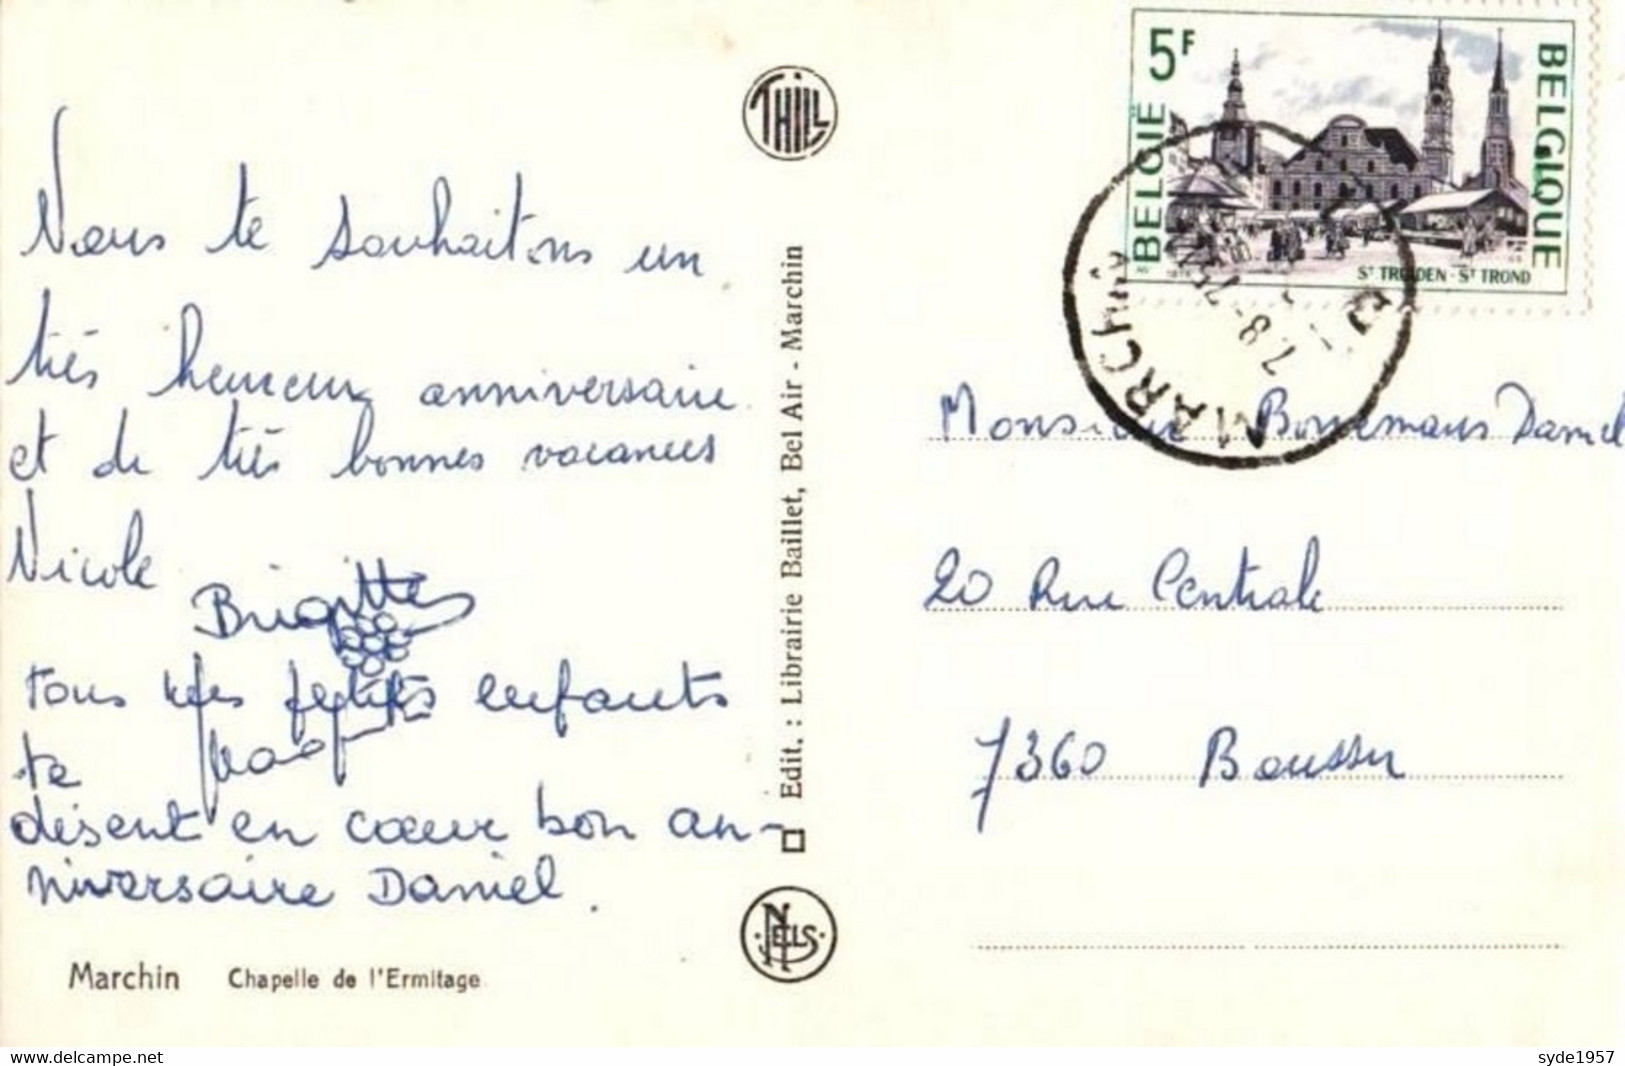 Nous te souhaitons un
très heureux anniversaire
et de très bonnes vacances
Nicole
Brigitte
tous mes petits enfants
te
disent en cœur bon an-
niversaire Daniel.
Marchin Chapelle de l'Ermitage
THILL
Edit. : Librairie Baillet, Bel Air - Marchin
NELS
5F
BELGIË
BELGIQUE
ST TRUIDEN - ST TROND
MARCHIN
Monsieur Bonnemans Daniel
20 Rue Centrale
7360 Boussu
syde1957
www.delcampe.net